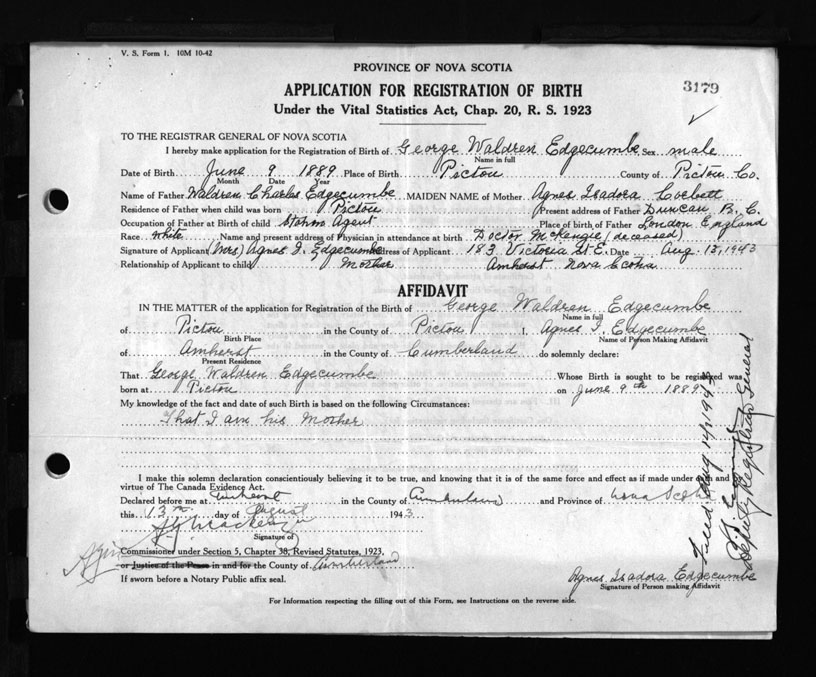 V. S. Form 1. 10M 10-42
PROVINCE OF NOVA SCOTIA
APPLICATION FOR REGISTRATION OF BIRTH
3179
Under the Vital Statistics Act, Chap. 20, R. S. 1923
TO THE REGISTRAR GENERAL OF NOVA SCOTIA
I hereby make application for the Registration of Birth of George Waldren Edgecumbe Sex male
Name in full
Date of Birth June 9 1889 Place of Birth Pictou County of Pictou Co.
Month Date Year
Name of Father Waldren Charles Edgecumbe MAIDEN NAME of Mother Agnes Isadora Corbett
Residence of Father when child was born Pictou Present address of Father Duncan B. C.
Occupation of Father at Birth of child Agent Place of birth of Father London England
Race white Name and present address of Physician in attendance at birth Doctor McKengie (deceased)
Signature of Applicant (Mrs) Agnes I. Edgecumbe Address of Applicant 183 Victoria St E. Date Aug. 13, 1943
Relationship of Applicant to child Mother Amherst Nova Scotia
AFFIDAVIT
IN THE MATTER of the application for Registration of the Birth of George Waldren Edgecumbe
Name in full
of Pictou in the County of Pictou I, Agnes I. Edgecumbe
Birth Place Name of Person Making Affidavit
of Amherst in the County of Cumberland do solemnly declare:
Present Residence
That George Waldren Edgecumbe Whose Birth is sought to be registered was
born at Pictou on June 9th 1889
My knowledge of the fact and date of such Birth is based on the following Circumstances:
That I am his Mother
I make this solemn declaration conscientiously believing it to be true, and knowing that it is of the same force and effect as if made under oath and
virtue of The Canada Evidence Act.
Declared before me at Amherst in the County of Cumberland and Province of Nova Scotia
this 13th day of August 1943
Signature of
Commissioner under Section 5, Chapter 38, Revised Statutes, 1923,
or Justice of the Peace in and for the County of Cumberland
If sworn before a Notary Public affix seal.
Agnes Isadora Edgecumbe
Signature of Person making Affidavit
For Information respecting the filling out of this Form, see Instructions on the reverse side.
Filed Aug 14, 1943
Deputy Registrar General